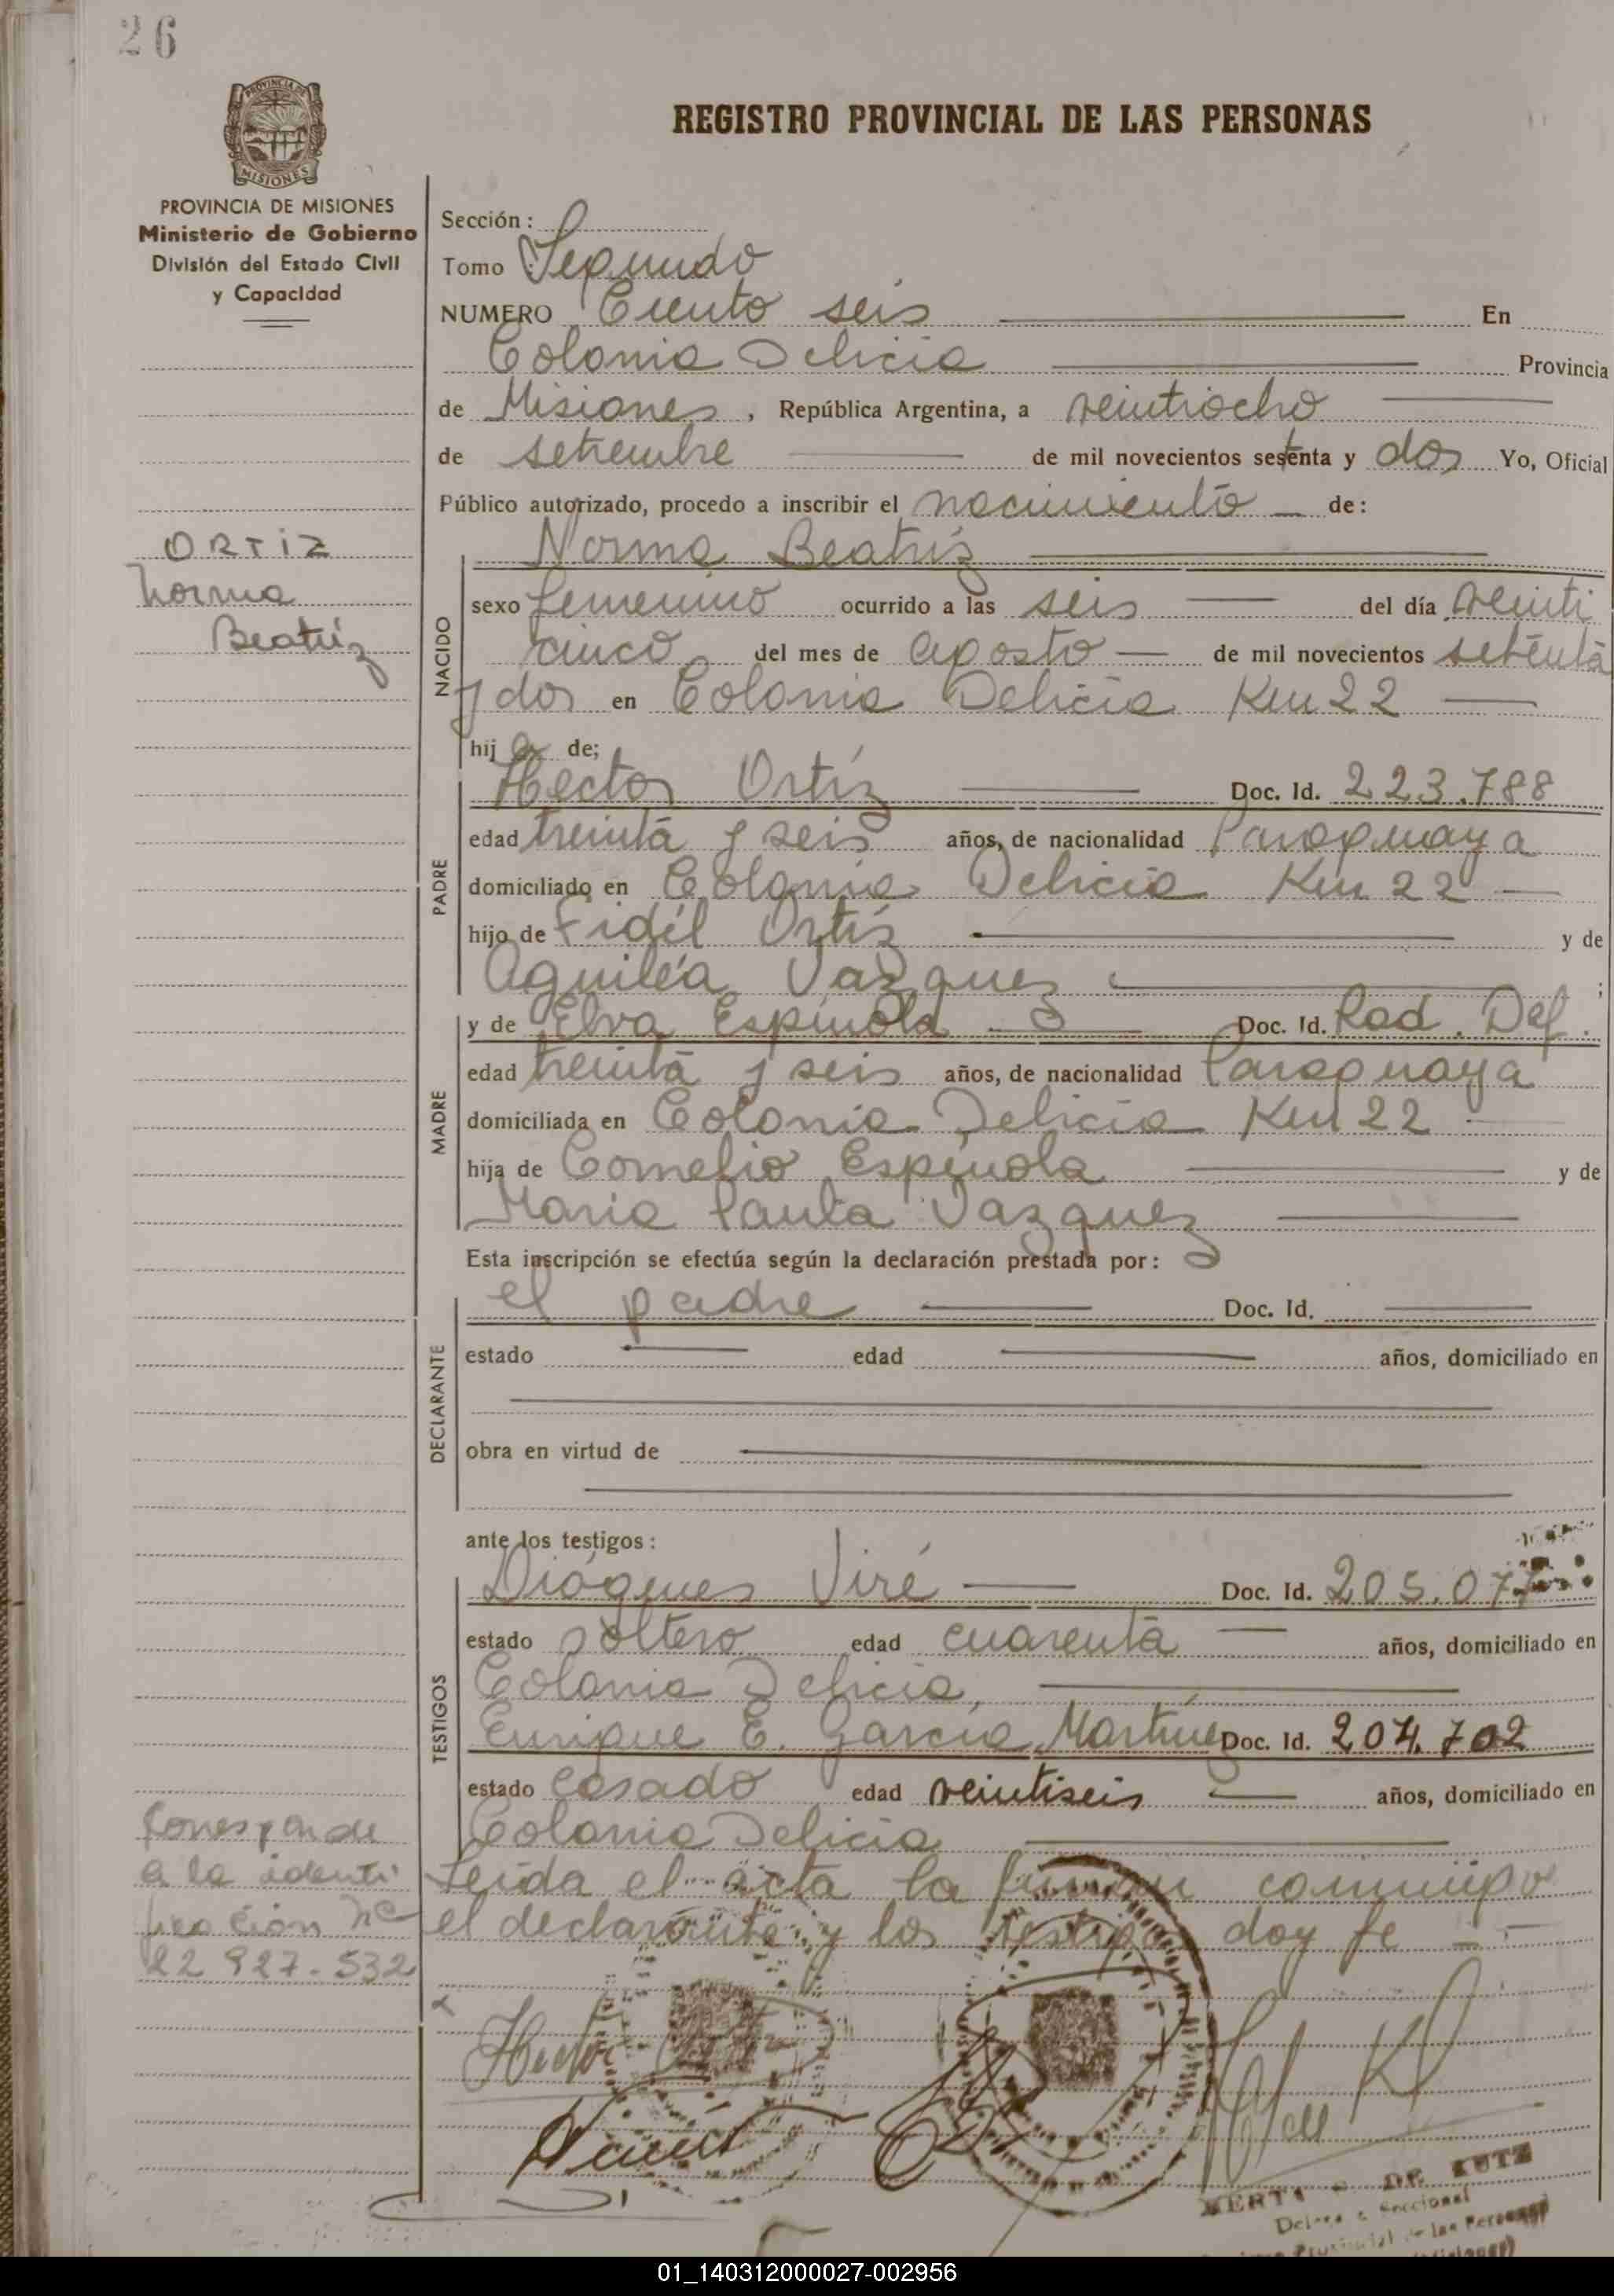 26
PROVINCIA DE
MISIONES
REGISTRO PROVINCIAL DE LAS PERSONAS
PROVINCIA DE MISIONES
Ministerio de Gobierno
División del Estado Civil
y Capacidad
Sección:
Tomo Segundo
NUMERO Ciento seis En
Colonia Delicia Provincia
de Misiones, República Argentina, a veintiocho
de setiembre de mil novecientos setenta y dos Yo, Oficial
Público autorizado, procedo a inscribir el nacimiento de:
ORTIZ
Norma
Beatríz
NACIDO
Norma Beatríz
sexo femenino ocurrido a las seis del día veinti
cinco del mes de agosto de mil novecientos setenta
y dos en Colonia Delicia Km 22
hij a de;
PADRE
Hector Ortíz Doc. Id. 223.788
edad treinta y seis años, de nacionalidad Paraguaya
domiciliado en Colonia Delicia Km 22
hijo de Fidél Ortíz y de
Aguiléa Vazquez ;
MADRE
y de Elva Espínola Doc. Id. Rad. Def.
edad treinta y seis años, de nacionalidad Paraguaya
domiciliada en Colonia Delicia Km 22
hija de Cornelio Espínola y de
Maria Paula Vazquez
Esta inscripción se efectúa según la declaración prestada por:
DECLARANTE
el padre Doc. Id.
estado edad años, domiciliado en
obra en virtud de
ante los testigos:
TESTIGOS
Diógenes Viré Doc. Id. 205.077
estado soltero edad cuarenta años, domiciliado en
Colonia Delicia,
Enrique E. García Martínez Doc. Id. 204.702
estado casado edad veintiseis años, domiciliado en
Colonia Delicia
Leida el acta la firman conmigo
el declarante y los testigos doy fe
Corresponde
a la identi
ficación Nº
22 927.532
Hector
DE KUTZ
Seccional
Provincial de las Personas
01_140312000027-002956